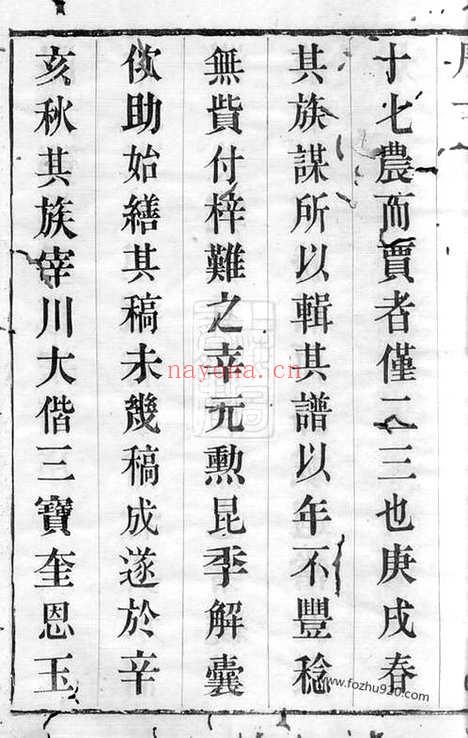 十七農而賈者僅二三也庚戌春
其族謀所以輯其譜以年不豐稔
無貲付梓難之幸元勳昆季解囊
佽助始繕其稿未幾稿成遂於辛
亥秋其族宰川大偕三寶奎恩玉
nayona.cn
www.fozhu920.com